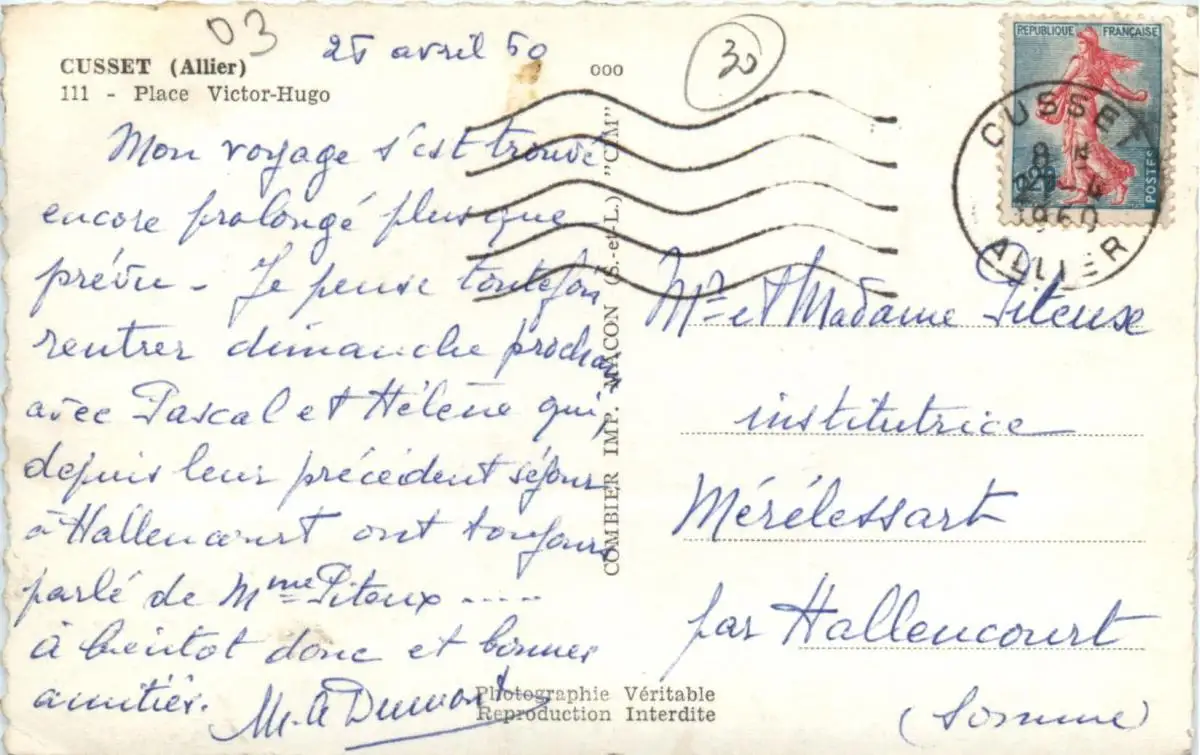 03
CUSSET (Allier)
111 - Place Victor-Hugo
avril 60
ooo
30
REPUBLIQUE FRANÇAISE
POSTES
CUSSET
1960
ALLIER
Mon voyage s'est trouvé
encore prolongé plus que
prévu - Je pense toutefois
rentrer dimanche prochain
avec Pascal et Hélène qui,
depuis leur précédent séjour
à Hallencourt ont toujours
parlé de Mme Piteux ----
à bientot donc et bonnes
amitiés.
M. A Dumont
COMBIER IMP. MACON (S.-et-L.) "CIM"
Mr et Madame Piteux
institutrice
Mérélessart
par Hallencourt
(Somme)
Photographie Véritable
Reproduction Interdite